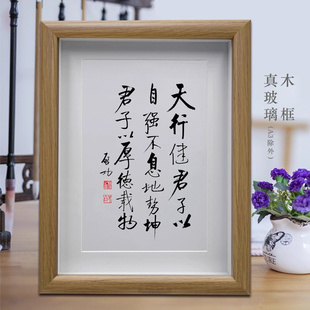 天行健君子以
自强不息地势坤
君子以厚德载物
启功
木框
真玻璃
(A3除外)